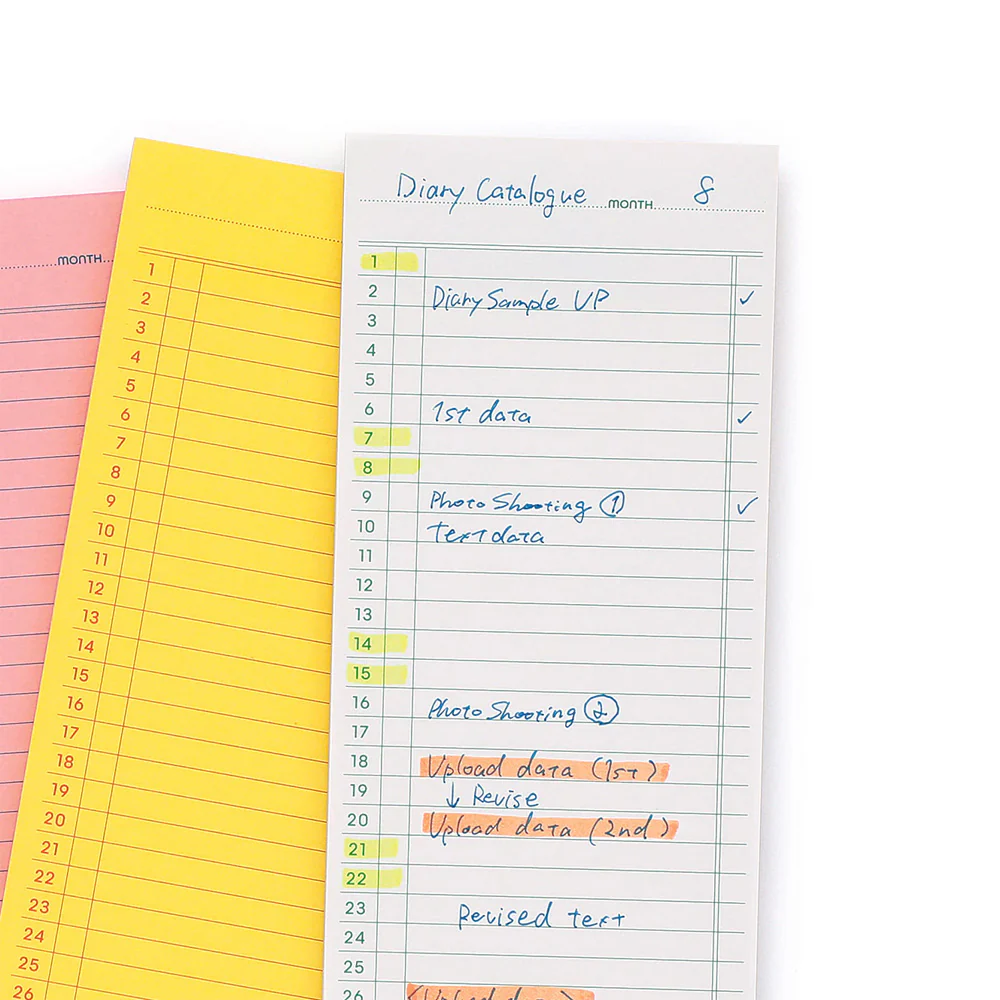 Diary Catalogue MONTH 8
1
2 Diary Sample UP ✓
3
4
5
6 1st data ✓
7
8
9 Photo Shooting ① ✓
10 Text data
11
12
13
14
15
16 Photo Shooting ②
17
18 Upload data (1st)
19 ↓ Revise
20 Upload data (2nd)
21
22
23 Revised text
24
25
26 (Upload data)
1
2
3
4
5
6
7
8
9
10
11
12
13
14
15
16
17
18
19
20
21
22
23
24
25
26
MONTH